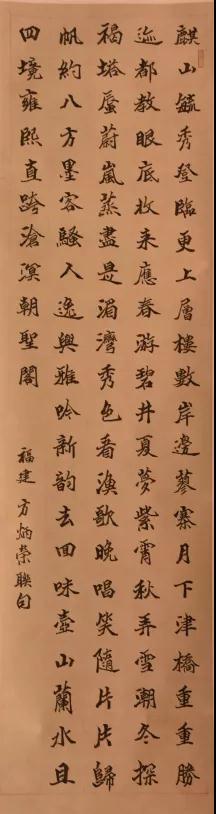 麒山毓秀登臨更上層樓數岸邊蓼寨月下津橋重重勝
迹都教眼底收来應春游碧井夏夢紫霄秋弄雪潮冬探
福塔蜃蔚嵐蒸盡是湄灣秀色看漁歌晚唱笑隨片片歸
帆約八方墨客騷人逸興雅吟新韵去回味壺山蘭水且
四境雍熙直跨滄溟朝聖閣
福建方炳榮聯句